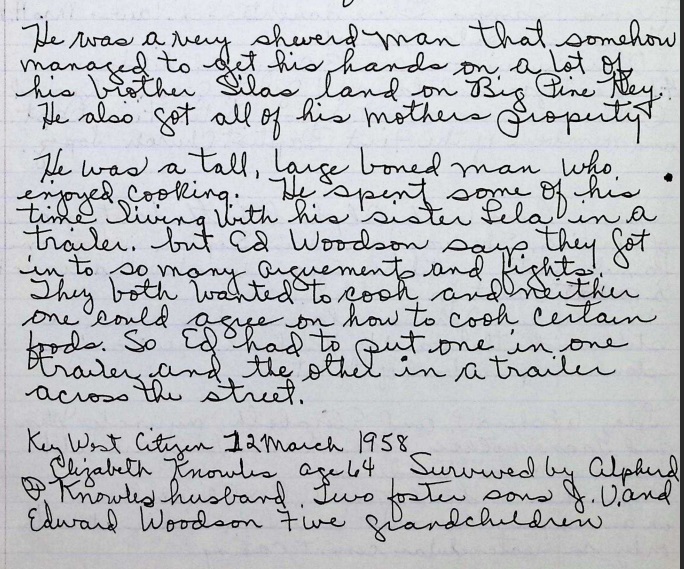 He was a very shewrd man that somehow
managed to get his hands on a lot of
his brother Silas land on Big Pine Key.
He also got all of his mothers property
He was a tall, large boned man who
enjoyed cooking. He spent some of his
time living with his sister Lela in a
trailer. but Ed Woodson says they got
in to so many arguements and fights.
They both wanted to cook and neither
one could agree on how to cook certain
foods. So Ed had to put one in one
trailer and the other in a trailer
across the street.
Key West Citizen 12 March 1958
Elizabeth Knowles age 64 Survived by Alpherd
Knowles husband. Two foster sons J.V. and
Edward Woodson Five grandchildren